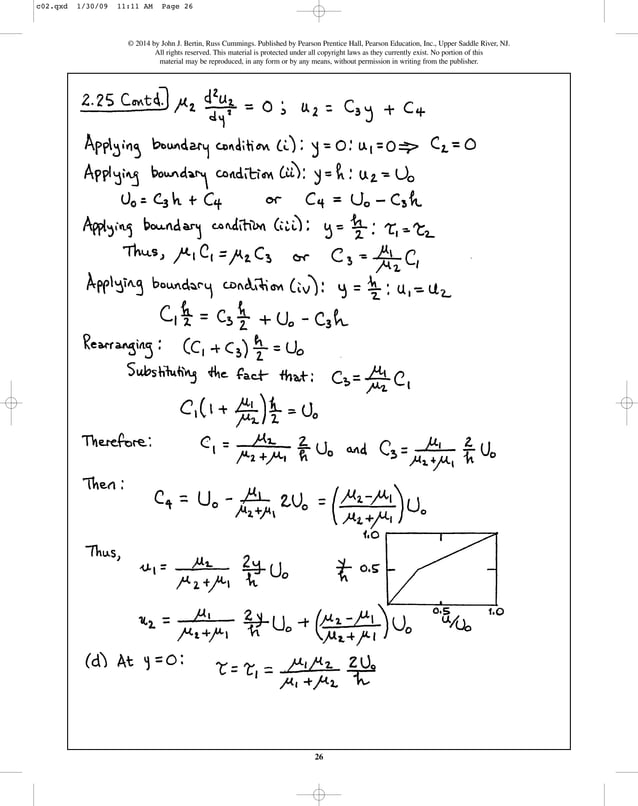 c02.qxd 1/30/09 11:11 AM Page 26
© 2014 by John J. Bertin, Russ Cummings. Published by Pearson Prentice Hall, Pearson Education, Inc., Upper Saddle River, NJ.
All rights reserved. This material is protected under all copyright laws as they currently exist. No portion of this
material may be reproduced, in any form or by any means, without permission in writing from the publisher.
2.25 Contd.] μ₂ d²u₂/dy² = 0 ; u₂ = C₃y + C₄
Applying boundary condition (i): y = 0: u₁ = 0 ⇒ C₂ = 0
Applying boundary condition (ii): y = h: u₂ = U₀
U₀ = C₃h + C₄ or C₄ = U₀ - C₃h
Applying boundary condition (iii): y = h/2: τ₁ = τ₂
Thus, μ₁C₁ = μ₂C₃ or C₃ = μ₁/μ₂ C₁
Applying boundary condition (iv): y = h/2: u₁ = u₂
C₁ h/2 = C₃ h/2 + U₀ - C₃h
Rearranging: (C₁ + C₃) h/2 = U₀
Substituting the fact that: C₃ = μ₁/μ₂ C₁
C₁(1 + μ₁/μ₂) h/2 = U₀
Therefore: C₁ = μ₂/(μ₂+μ₁) 2/h U₀ and C₃ = μ₁/(μ₂+μ₁) 2/h U₀
Then: C₄ = U₀ - μ₁/(μ₂+μ₁) 2U₀ = ((μ₂-μ₁)/(μ₂+μ₁)) U₀
Thus,
u₁ = μ₂/(μ₂+μ₁) 2y/h U₀
u₂ = μ₁/(μ₂+μ₁) 2y/h U₀ + ((μ₂-μ₁)/(μ₂+μ₁)) U₀
1.0
y/h 0.5
0.5 1.0
u/U₀
(d) At y = 0: τ = τ₁ = μ₁μ₂/(μ₁+μ₂) 2U₀/h
26